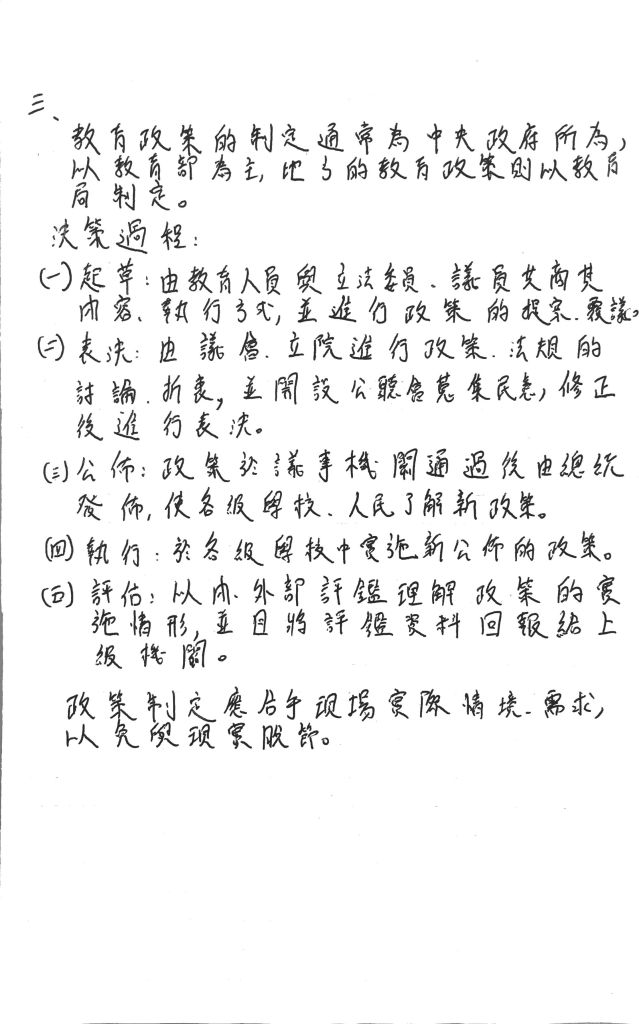 三、
教育政策的制定通常為中央政府所為,
以教育部為主,地方的教育政策則以教育
局制定。
決策過程:
(一)起草:由教育人員與立法委員、議員共商其
內容、執行方式,並進行政策的提案、覆議。
(二)表決:由議會、立院進行政策、法規的
討論、折衷,並開設公聽會蒐集民意,修正
後進行表決。
(三)公佈:政策於議事機關通過後由總統
發佈,使各級學校、人民了解新政策。
(四)執行:於各級學校中實施新公佈的政策。
(五)評估:以內、外部評鑑理解政策的實
施情形,並且將評鑑資料回報給上
級機關。
政策制定應合乎現場實際情境、需求,
以免與現實脫節。